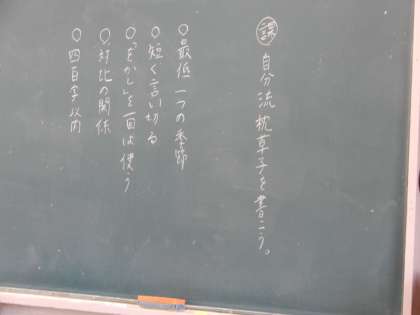 課 自分流枕草子を書こう。
○最低一つの季節
○短く言い切る
○「をかし」を一回は使う
○対比の関係
○四百字以内